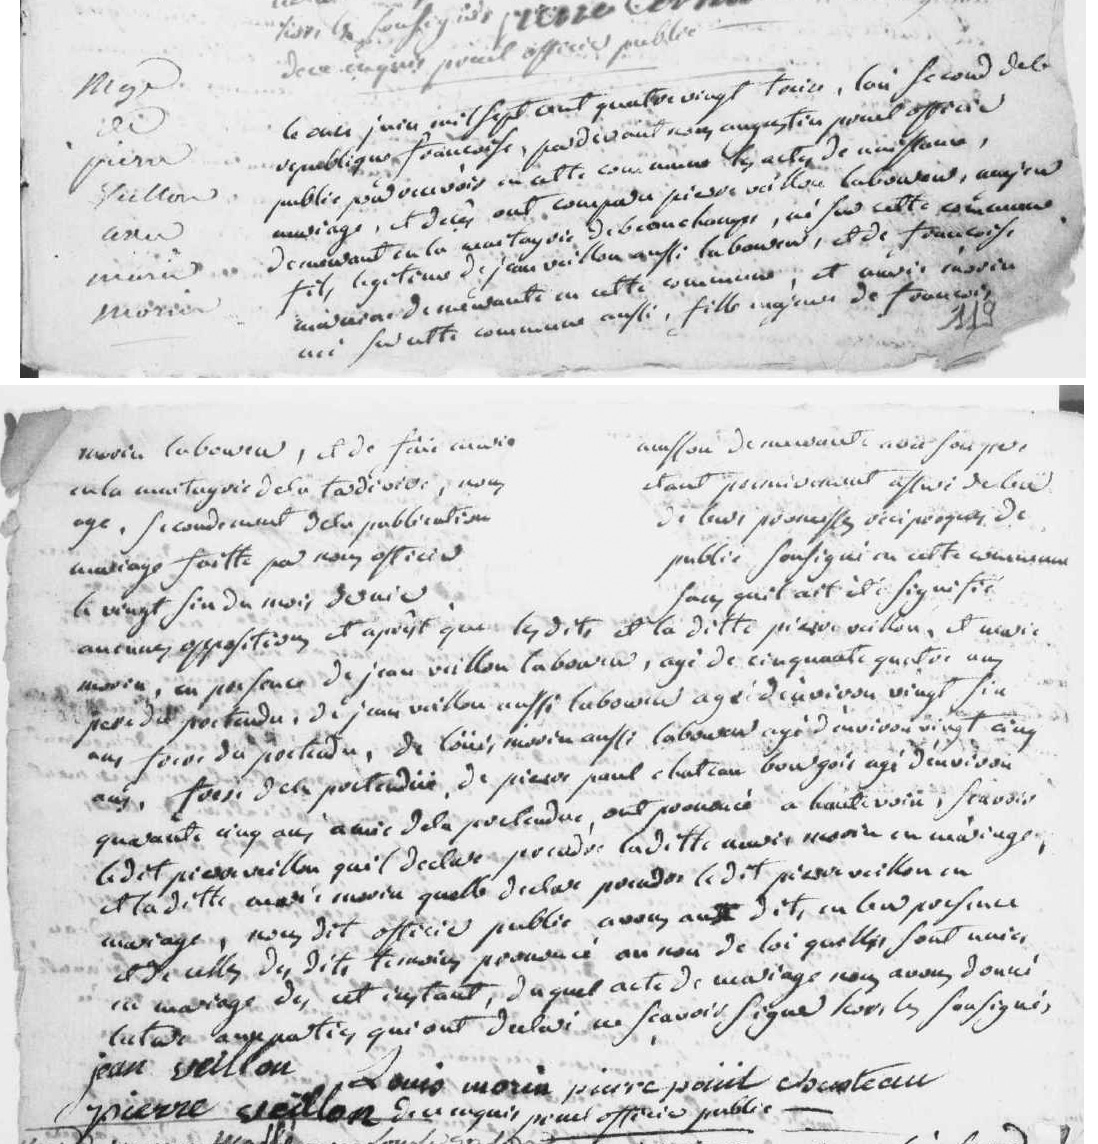 hors les soussignés pierre
pruel officier public
Mge
de
pierre
veillon
avec
marie
morin
le onze juin mil sept cent quatre vingt treize, l'an second de la
republique francoise, pardevant nous augustin pruel officier
public pour recevoir en cette commune les actes de naissance,
mariage, et deces ont comparu pierre veillon laboureur, majeur
demeurant en la maitayrie de beauchamps, né sur cette commune
fils legitime de jean veillon aussi laboureur, et de francoise
demeurante en cette commune, et marie morin
née sur cette commune aussi, fille majeure de francois
119
morin laboureur, et de feue marie ausson demeurante avec son pere
en la maitayrie de la tardivire, nous etant premierement assuré de leur
age, secondement de la publication de leurs promesses reciproques de
mariage faitte par nous officier public soussigné en cette commune
le vingt six du mois dernier sans quil ait été signifié
aucunes oppositions et aprest que lesdits et laditte pierre veillon, et marie
morin, en presence de jean veillon laboureur, agé de cinquante quatre ans
pere du pretendu, de jean veillon aussi laboureur agé denviron vingt six
ans frere du pretendu, de louis morin aussi laboureur agé denviron vingt cinq
ans, frere de la pretendue, de pierre paul chateau bourgois agé denviron
quarante cinq ans amie de la pretendue, ont prononcé a haute voix, scavoir
ledit pierre veillon quil declare prendre laditte marie morin en mariage,
et laditte marie morin quelle declare prendre ledit pierre veillon en
mariage, nous dit officier public avons aux dits, en leur presence
et de celles des dits temoins prononcé au nom de loi quelles sont unies
en mariage des cet instant, duquel acte de mariage nous avons donné
lecture aux parties qui ont declaré ne scavoir signer hors les soussignés,
jean veillon
Louis morin pierre paul chasteau
pierre veillon pruel officier public